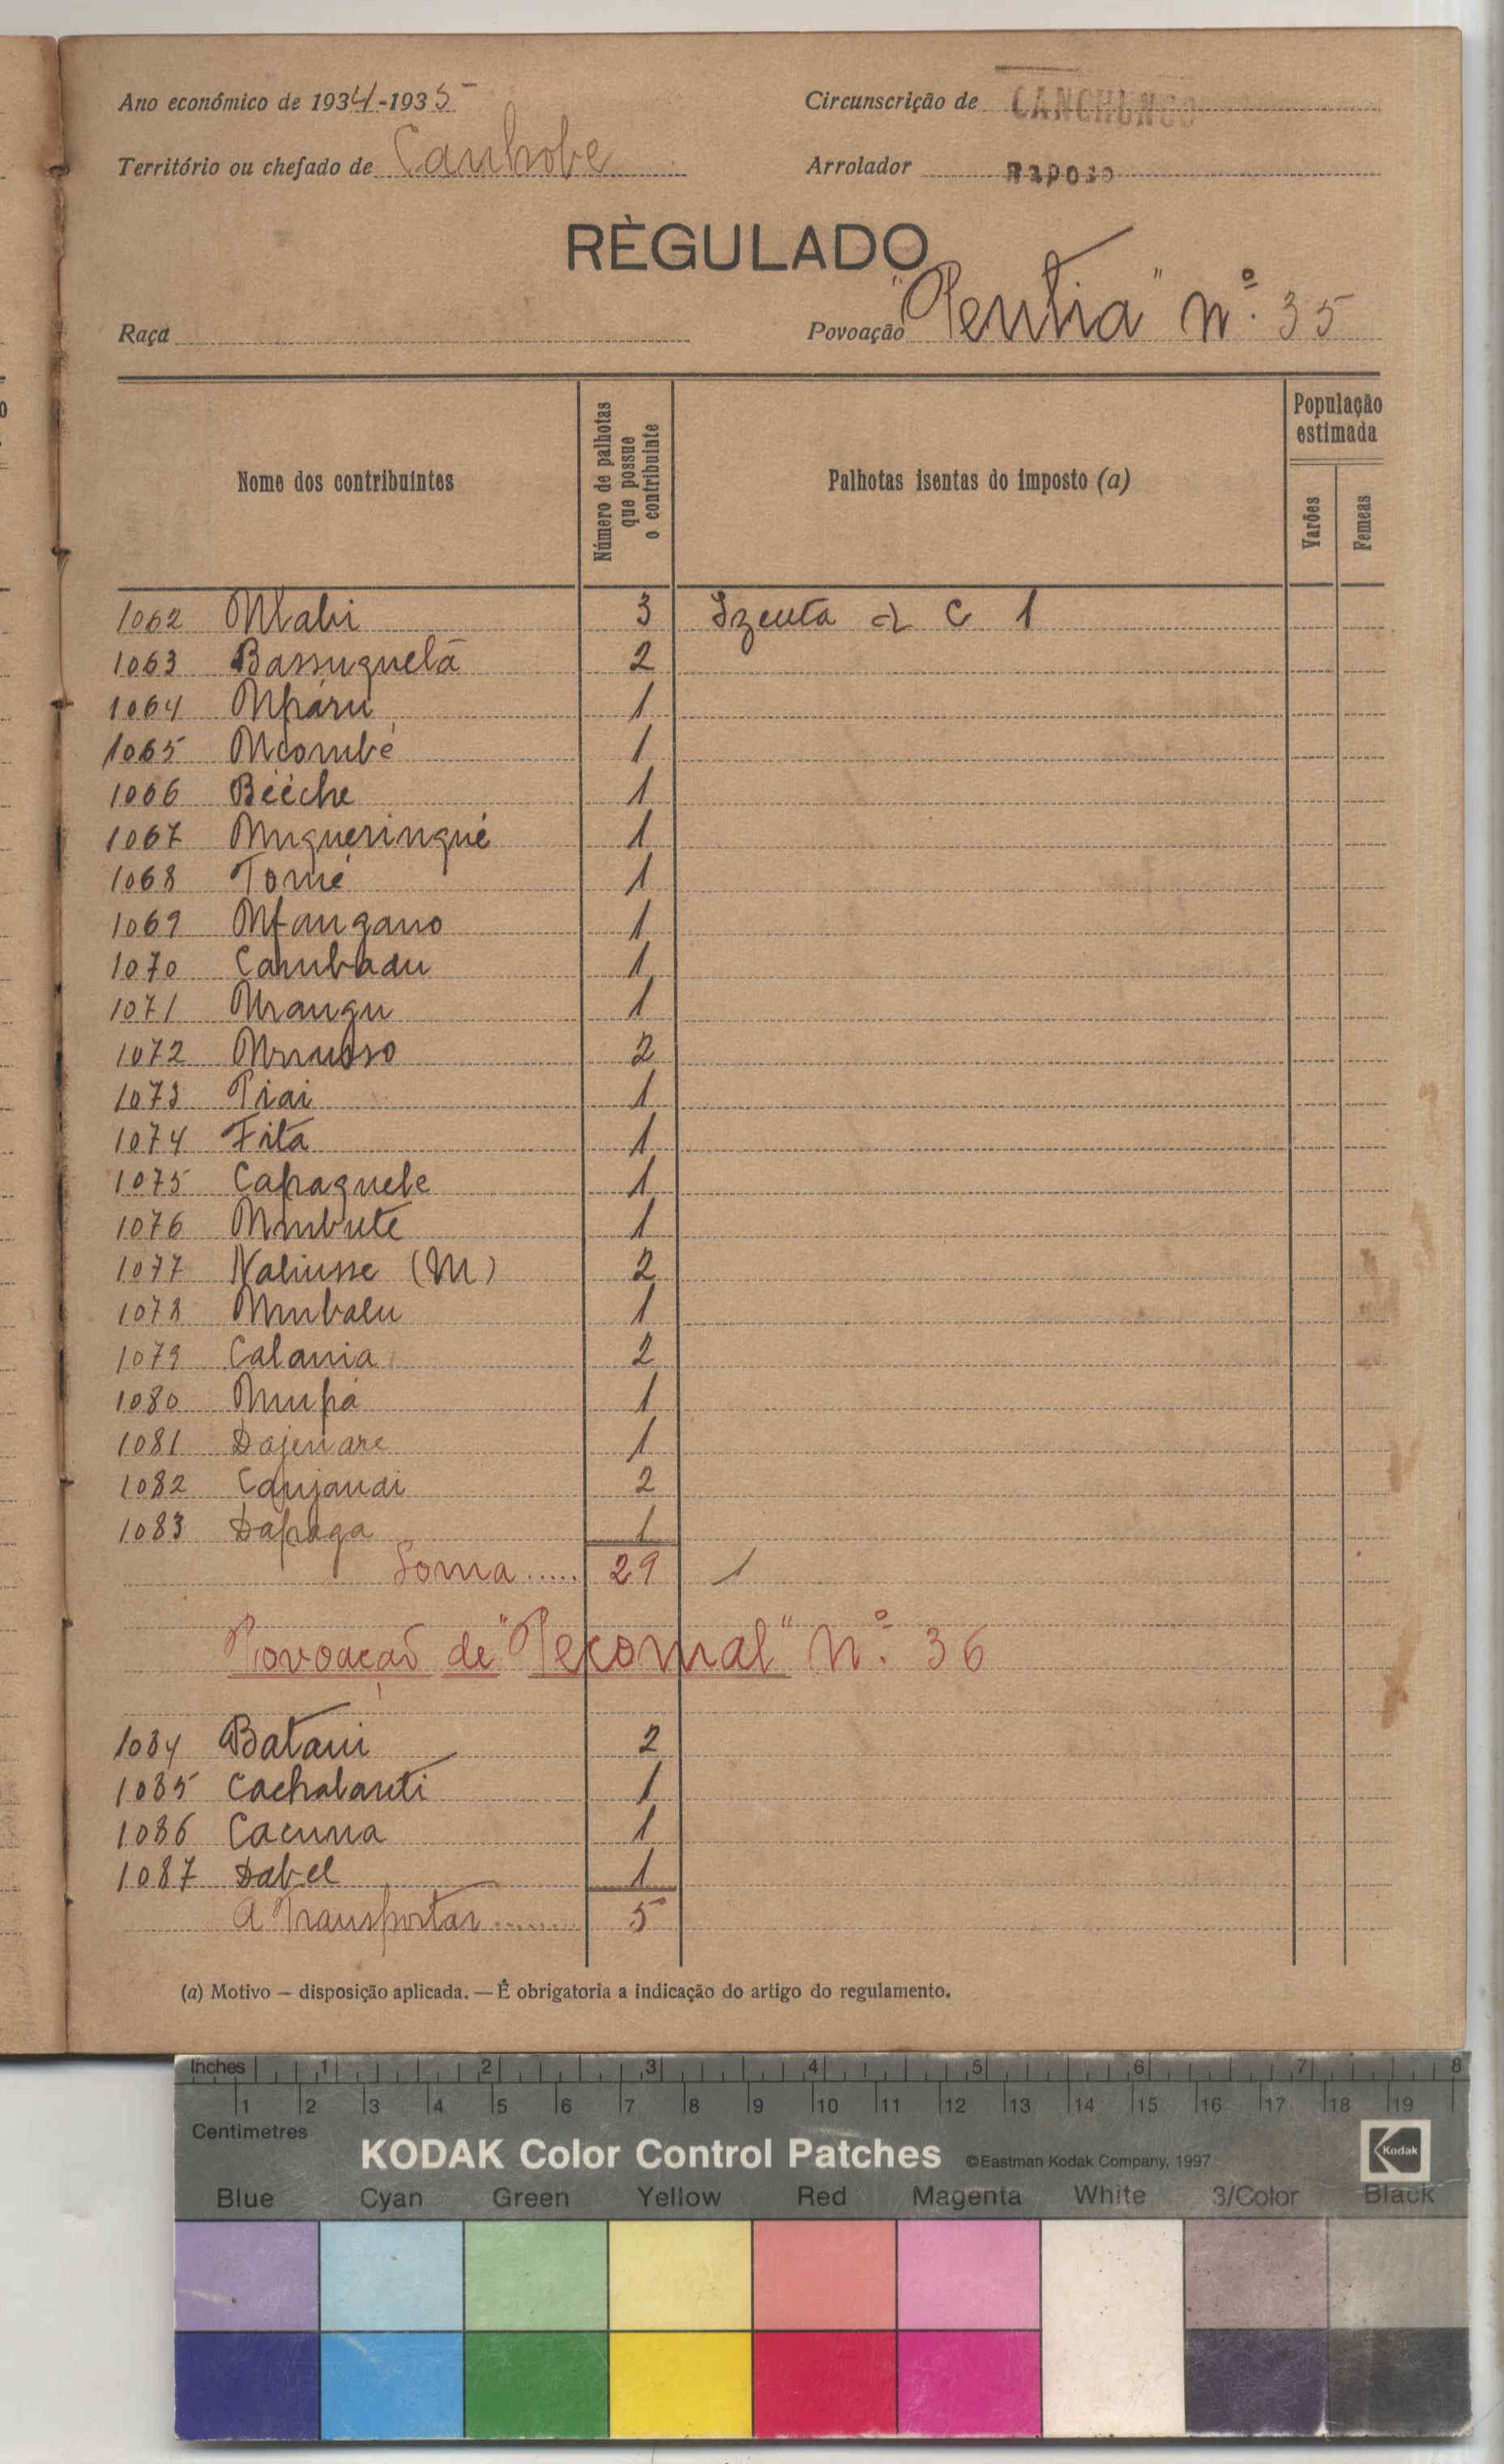 Ano económico de 1934-1935
Circunscrição de CANCHUNGO
Território ou chefado de Canhobe
Arrolador Raposo
RÈGULADO
Raça
Povoação "Pentia" nº. 35
Nome dos contribuintes
Número de palhotas que possue o contribuinte
Palhotas isentas do imposto (a)
População estimada
Varões
Femeas
1062 Mtabi 3 Izenta a C 1
1063 Bassuquelã 2
1064 Mparu 1
1065 Mcombé 1
1066 Bééche 1
1067 Mungueringué 1
1068 Tomé 1
1069 Mfangano 1
1070 Cambadu 1
1071 Mrangu 1
1072 2
1073 Piai 1
1074 Fita 1
1075 Capaguebe 1
1076 Mmbute 1
1077 Naliusse (M) 2
1078 Mmbalu 1
1079 Calania 2
1080 Mupá 1
1081 Dajenare 1
1082 Canjandi 2
1083 Dapaga 1
Soma ..... 29 1
Povoação de "Pecomal" Nº. 36
1084 Batani 2
1085 Cachalanti 1
1086 Cacuma 1
1087 Dabel 1
A Transportar ....... 5
(a) Motivo — disposição aplicada. — É obrigatoria a indicação do artigo do regulamento.
Inches 1 2 3 4 5 6 7 8
1 2 3 4 5 6 7 8 9 10 11 12 13 14 15 16 17 18 19
Centimetres
KODAK Color Control Patches ©Eastman Kodak Company, 1997 Kodak
Blue Cyan Green Yellow Red Magenta White 3/Color Black